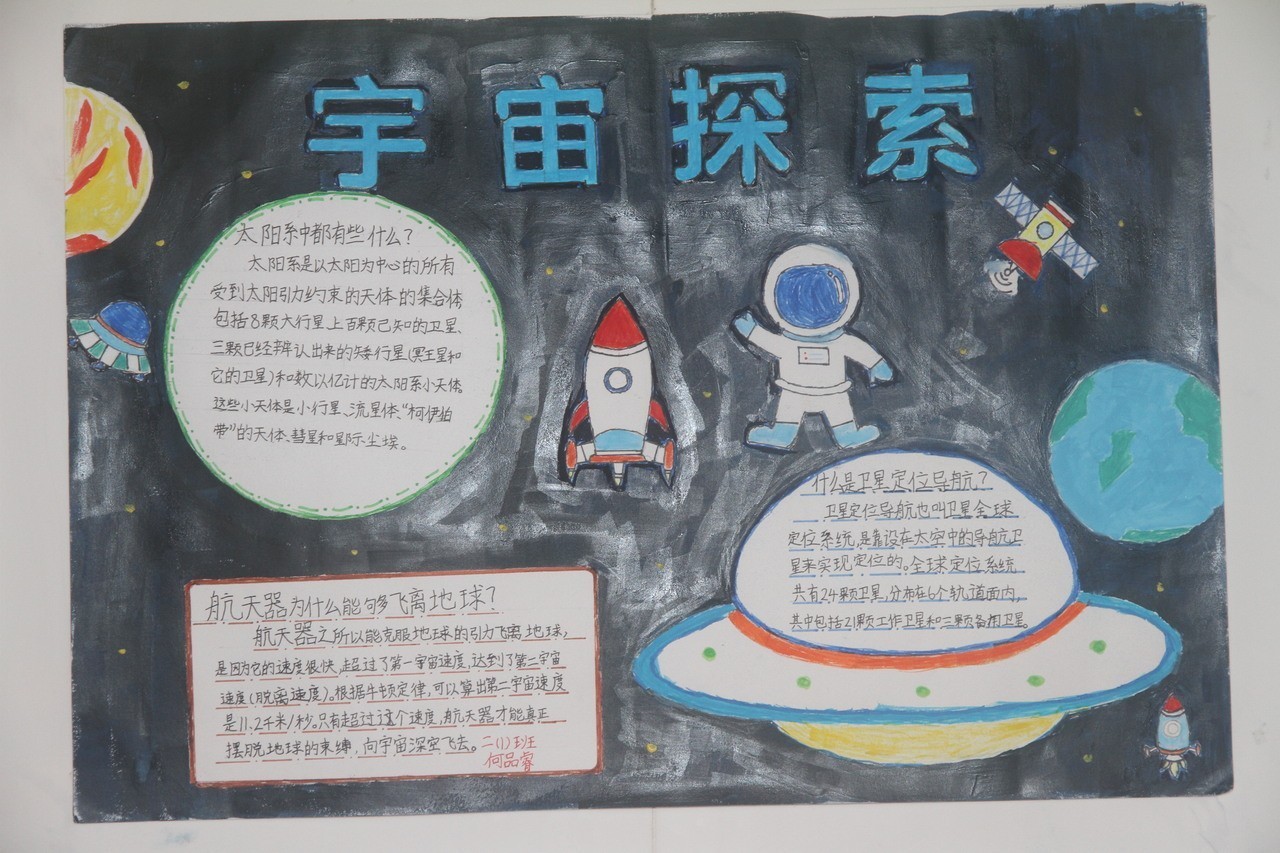 宇宙探索
太阳系中都有些什么?
太阳系是以太阳为中心的所有
受到太阳引力约束的天体的集合体
包括8颗大行星上百颗已知的卫星、
三颗已经辨认出来的矮行星(冥王星和
它的卫星)和数以亿计的太阳系小天体
这些小天体是小行星、流星体、“柯伊伯
带”的天体、彗星和星际尘埃。
什么是卫星定位导航?
卫星定位导航也叫卫星全球
定位系统,是靠设在太空中的导航卫
星来实现定位的。全球定位系统
共有24颗卫星,分布在6个轨道面内,
其中包括21颗工作卫星和三颗备用卫星。
航天器为什么能够飞离地球?
航天器之所以能克服地球的引力飞离地球,
是因为它的速度很快,超过了第一宇宙速度,达到了第二宇宙
速度(脱离速度)。根据牛顿定律,可以算出第二宇宙速度
是11.2千米/秒。只有超过这个速度,航天器才能真正
摆脱地球的束缚,向宇宙深空飞去。
二(1)班
何品睿